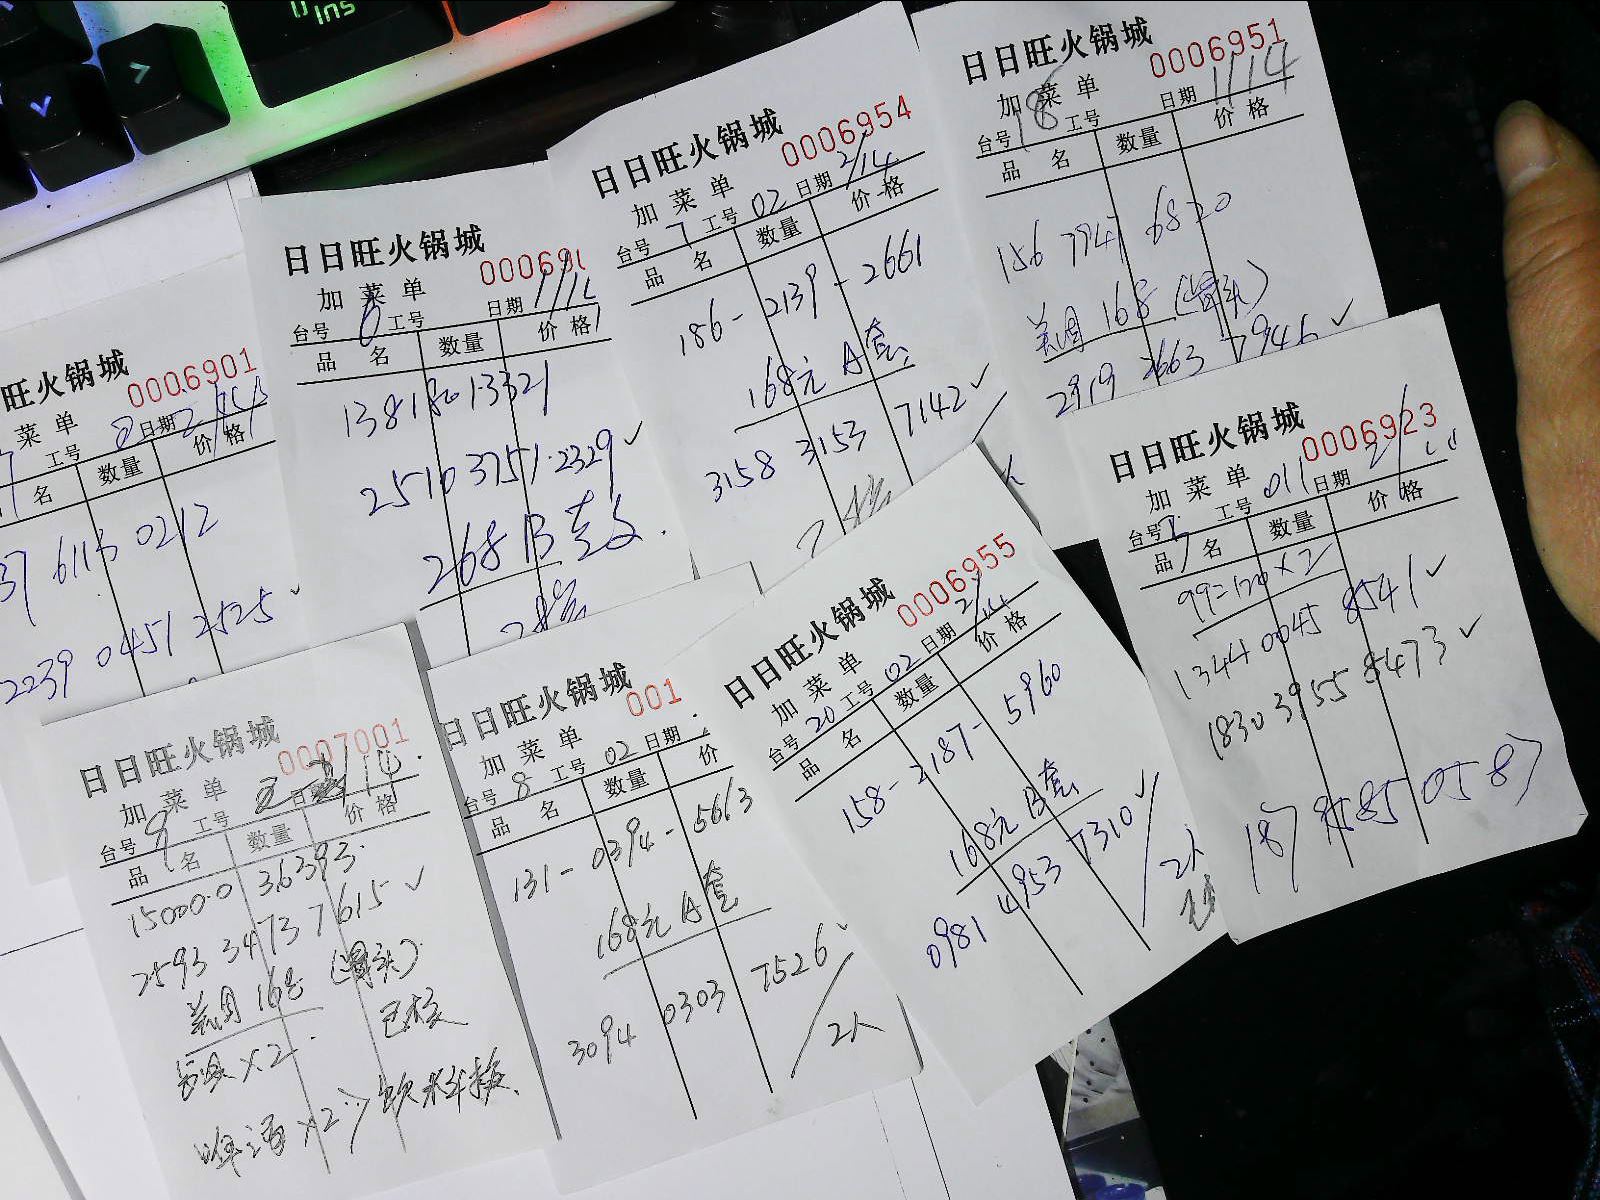 Ins
日日旺火锅城
0006951
加菜单
台号 18 工号 日期 1/14
品名 数量 价格
156 7947 6820
美团 168 (罐头)
2919 2663 7946 ✓
日日旺火锅城
0006954
加菜单
台号 7 工号 02 日期 2/14
品名 数量 价格
186-2139-2661
168元 A套
3158 3153 7142 ✓
日日旺火锅城
加菜单
台号 6 工号 日期
品名 数量 价格
138180 13321
2510 3751 2329 ✓
268 B
旺火锅城
0006901
菜单
工号 日期
名 数量 价格
37 6115 0212
2239 0451 2525
日日旺火锅城
0006923
加菜单
台号 工号 011 日期
品名 数量 价格
99=120×2
1344 0045 8541 ✓
1830 3955 8473 ✓
187 8585 0587
日日旺火锅城
0006955
加菜单
台号 20 工号 02 日期 2/14
品名 数量 价格
158-2187-5960
168元 B套
0981 4953 7310 ✓
2人
日日旺火锅城
001
加菜单
台号 8 工号 02 日期
品名 数量 价
131-0394-5613
168元 A套
3094 0303 7526
2人
日日旺火锅城
0007001
加菜单
台号 9 工号 日期
品名 数量 价格
15000.0 36393.
2593 3473 7615 ✓
美团 168 (罐头)
已核
啤酒×2 饮料接